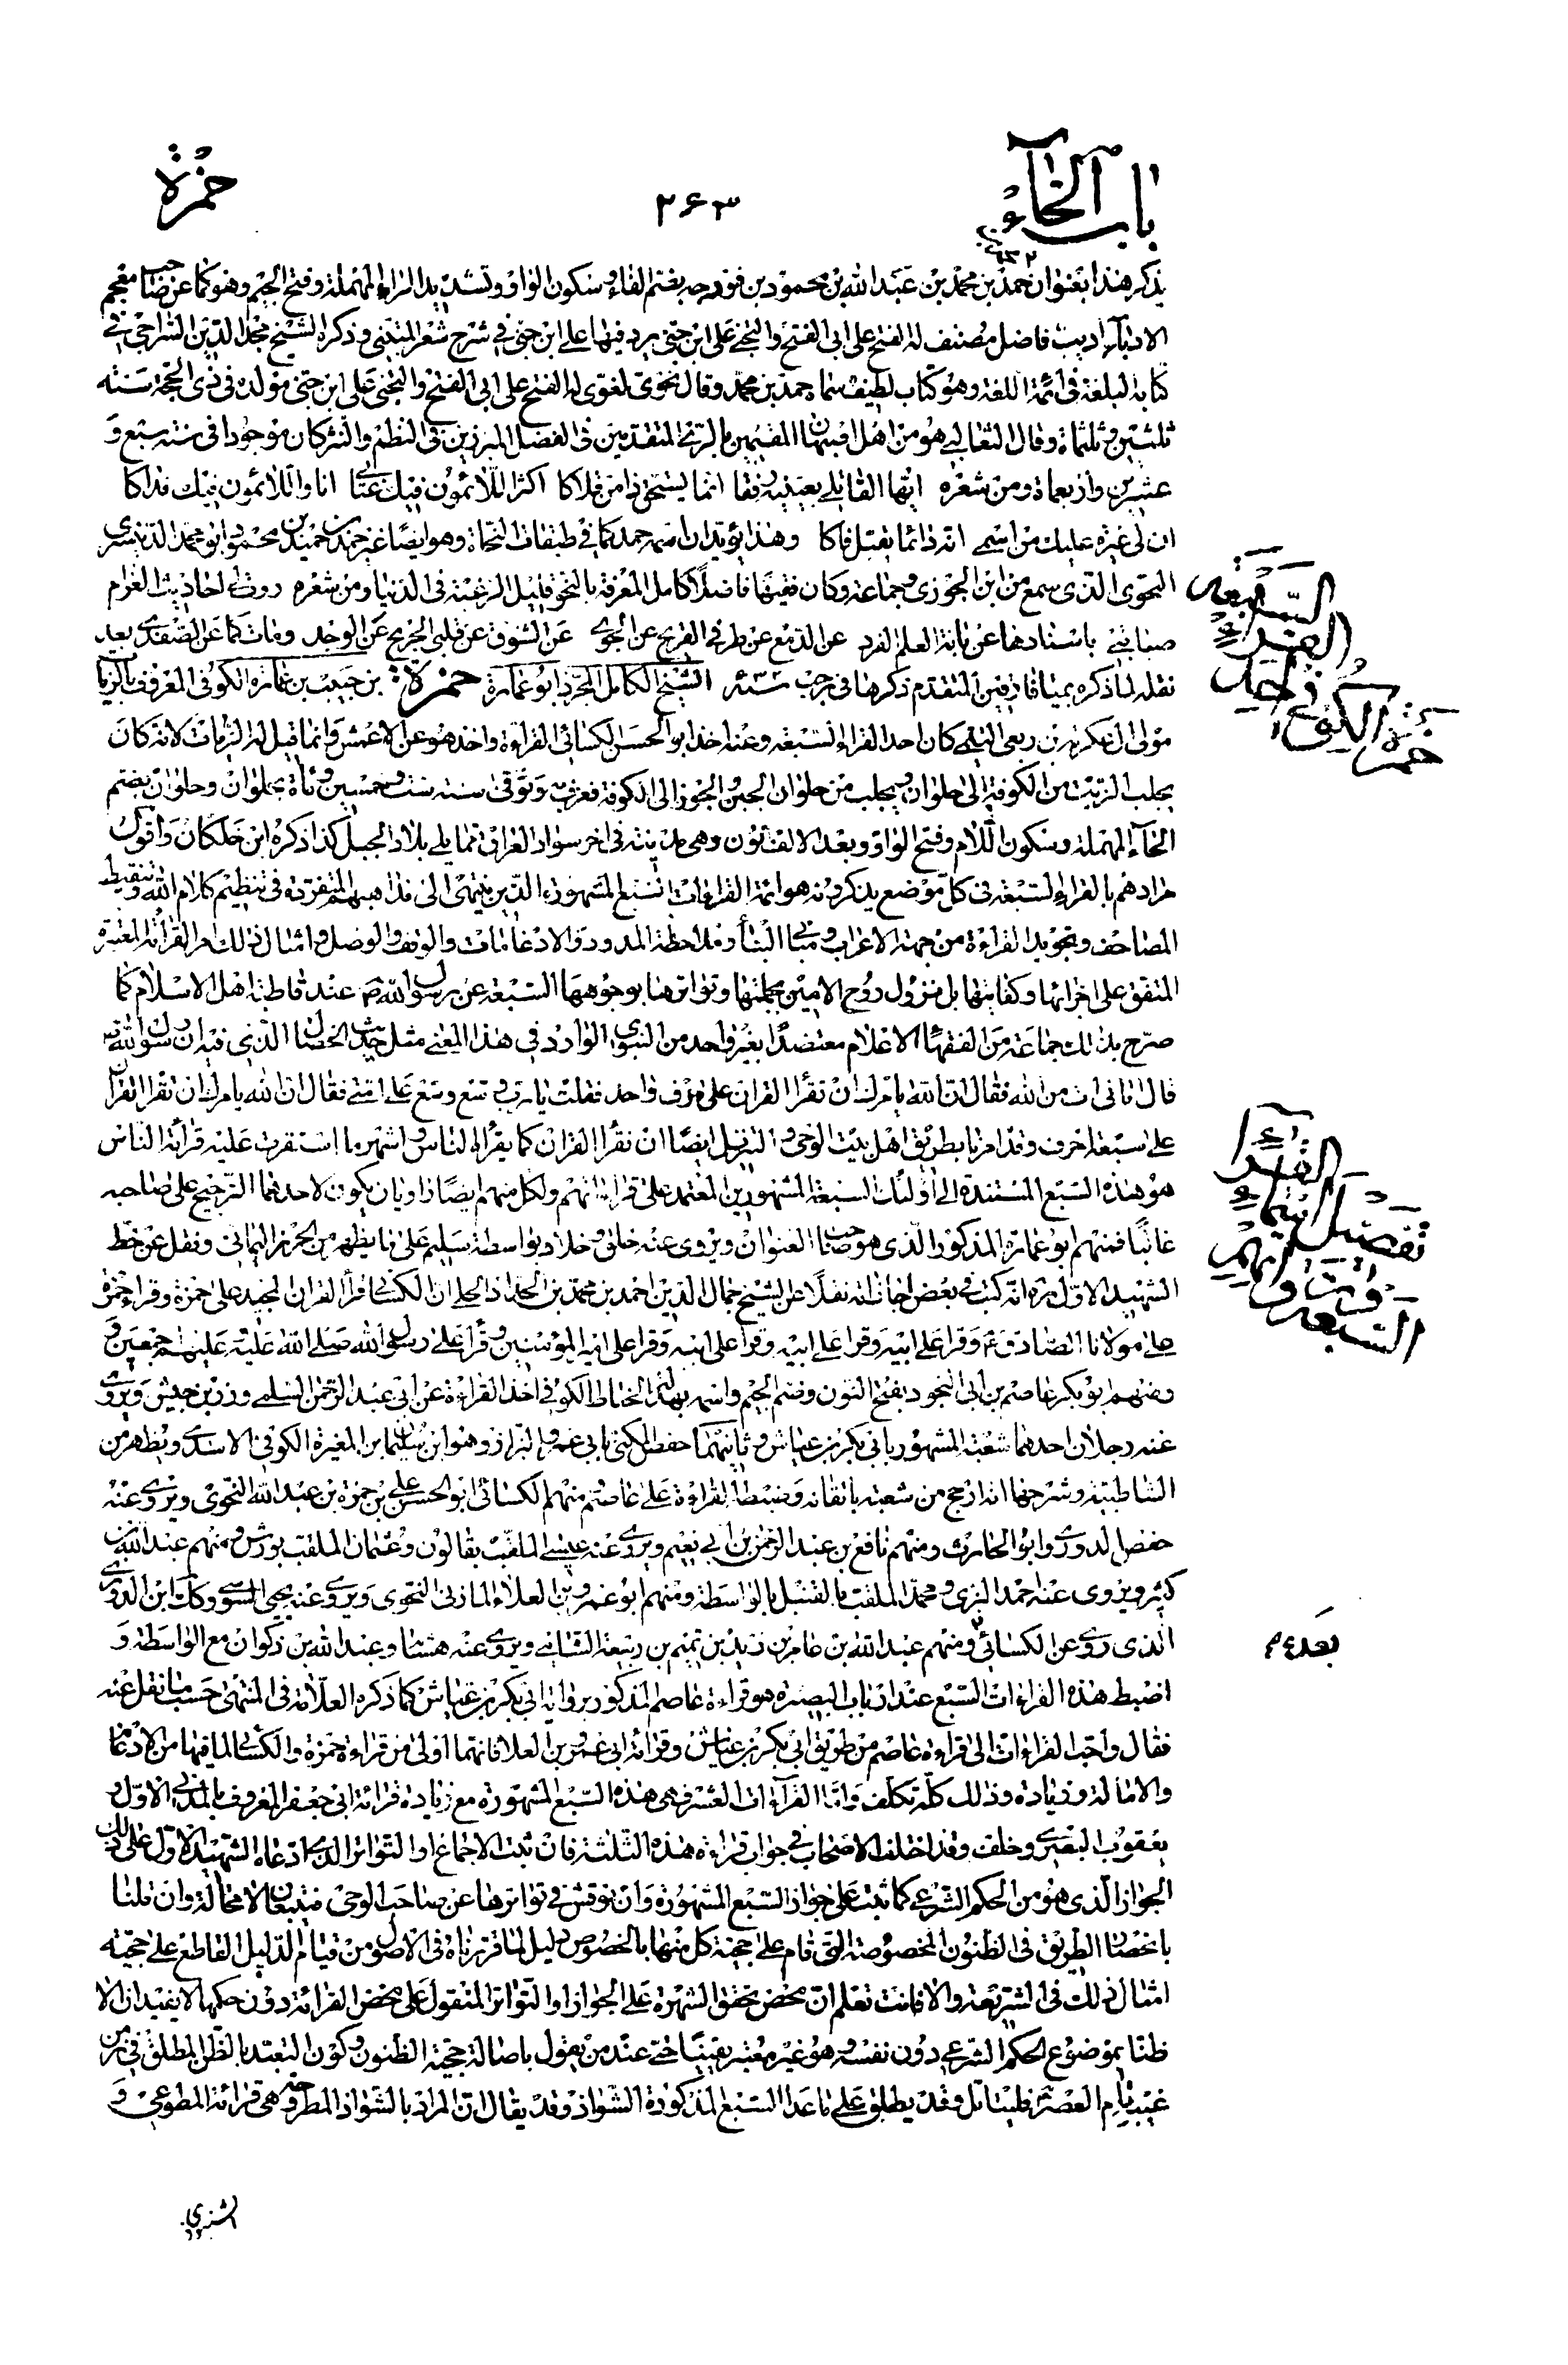 باب الحاء
٢٦٣
حمزة
يذكر هذا بعنوان حمد بن محمد بن عبد الله بن محمود بن فورجه بضم الفاء وسكون الواو وتشديد الراء المهملة وفتح الجيم وهو كما عن صاحب معجم
الادباء اديب فاضل مصنف له الفتح على ابى الفتح والتجنى على ابن جنى يرد فيها على ابن جنى فى شرح شعر المتنبى وذكره الشيخ مجد الدين الشيرازى فى
كتابه البلغة فى ائمة اللغة وهو كتاب لطيف سماه حمد بن محمد وقال نحوى لغوى له الفتح على ابى الفتح والتجنى على ابن جنى مولده فى ذى الحجة سنة
ثلثين وثلثمائة وقال الثعالبى هو من اهل اصبهان المقيمين بالرى المتقدمين فى الفضل المبرزين فى النظم والنثر كان موجودا فى سنة سبع و
عشرين واربعمائة ومن شعره ايها القاتلى بعينيه رفقا انما يستحق ذا من قلاكا اكثر اللائمون فيك عتابى انا واللائمون فيك فداكا
ان لى غيرة عليك من اسمى انه دائما يقبل فاكا وهذا يؤيد ان اسمه حمد كما فى طبقات النحاة وهو ايضا غير حمد بن حميد بن محمود ابو محمد الدنيسرى
النحوى الذى سمع من ابن الجوزى وجماعة وكان فقيها فاضلا كامل المعرفة بالنحو قليل الرغبة فى الدنيا ومن شعره روت لى احاديث الغرام
صبابتى باسنادها عن بانة العلم الفرد عن الدمع عن طرفى القريح عن الجوى عن الشوق عن قلبى الجريح عن الوجد ومات كما عن الصفدى بعد
نقله لما ذكره بميافارقين المتقدم ذكرها فى رجب سنة الشيخ الكامل المجرد ابو عمارة حمزة بن حبيب بن عمارة الكوفى المعروف بالزيات
مولى آل عكرمة بن ربعى التيمى كان احد القراء السبعة وعنه اخذ ابو الحسن الكسائى القراءة واخذ هو عن الاعمش وانما قيل له الزيات لانه كان
يجلب الزيت من الكوفة الى حلوان ويجلب من حلوان الجبن والجوز الى الكوفة فعرف به وتوفى سنة ست وخمسين ومأة بحلوان وحلوان بضم
الحاء المهملة وسكون اللام وفتح الواو وبعد الالف نون وهى مدينة فى اخر سواد العراق مما يلى بلاد الجبل كذا ذكره ابن خلكان واقول
مرادهم بالقراء السبعة فى كل موضع يذكرونه هو ائمة القراءات السبع المشهورة الذين ينتهى الى مذاهبهم المتفردة فى تنظيم كلام الله وتنقيط
المصاحف وتجويد القراءة من جهة الاعراب ومبانى البناء وملاحظة المدود والادغامات والوقف والوصل وامثال ذلك امر القرائة المعتبرة
المتفق على اجزائها وكفايتها بل نزول روح الامين بجملتها وتواترها بوجوهها السبعة عن رسول الله ص عند قاطبة اهل الاسلام كما
صرح بذلك جماعة من الفقهاء الاعلام معتضدا بغير واحد من النبوى الوارد فى هذا المعنى مثل حديث الخصال الذى فيه ان رسول الله ص
قال اتانى آت من الله فقال ان الله يأمرك ان تقرأ القران على حرف واحد فقلت يا رب وسع على امتى فقال ان الله يأمرك ان تقرأ القرآن
على سبعة احرف وقد امرنا بطريق اهل بيت الوحى والتنزيل ايضا ان نقرأ القران كما يقرأه الناس واشهر ما استقرت عليه قرائة الناس
هو هذه السبع المستندة الى اولئك السبعة المشهورين المعتمد على قراءاتهم ولكل منهم ايضا راويان يكون لاحدهما الترجيح على صاحبه
غالبا فمنهم ابو عمارة المذكور الذى هو صاحب العنوان ويروى عنه خلف وخلاد بواسطة سليم على ما يظهر من الحرز اليمانى ونقل عن خط
الشهيد الاول ره انه كتب فى بعض اجازاته نقلا عن الشيخ جمال الدين احمد بن محمد بن الحداد الحلى ان الكسائى قرأ القران المجيد على حمزة وقرأ حمزة
على مولانا الصادق ع وقرأ على ابيه وقرأ على ابيه وقرأ على ابيه وقرأ على امير المؤمنين وقرأ على رسول الله صلى الله عليه وعليهم اجمعين و
ومنهم ابو بكر عاصم بن ابى النجود بفتح النون وضم الجيم واسمه بهدلة الحناط الكوفى اخذ القراءة عن ابى عبد الرحمن السلمى وزر بن حبيش ويروى
عنه رجلان احدهما شعبة المشهور بابى بكر بن عياش وثانيهما حفص المكنى بابى عمرو البزاز وهو ابن سليمان بن المغيرة الكوفى الاسدى ويظهر من
الشاطبية وشرحها انه ارجح من شعبة باتقانه وضبط القراءة على عاصم ومنهم الكسائى ابو الحسن على بن حمزة بن عبد الله النحوى ويروى عنه
حفص الدورى وابو الحارث ومنهم نافع بن عبد الرحمن بن ابى نعيم ويروى عنه عيسى الملقب بقالون وعثمان الملقب بورش ومنهم عبد الله بن
كثير ويروى عنه احمد البزى ومحمد الملقب بالقنبل بالواسطة ومنهم ابو عمرو بن العلاء المازنى النحوى ويروى عنه يحيى السوسى وكك ابن الدورى
الذى روى عن الكسائى ومنهم عبد الله بن عامر بن زيد بن تميم بن ربيعة الشامى ويروى عنه هشام وعبد الله بن ذكوان مع الواسطة و
اضبط هذه القراءات السبع عند ارباب البصيرة هو قراءة عاصم المذكور برواية ابى بكر بن عياش كما ذكره العلامة فى المنتهى حسب ما نقل عنه
فقال واحب القراءات الى قراءة عاصم من طريق ابى بكر بن عياش وقرائة ابى عمرو بن العلا فانهما اولى من قراءة حمزة والكسائى لما فيهما من الادغام
والامالة وزيادة وذلك كله تكلف واما القراءات العشر فهى هذه السبع المشهورة مع زيادة قرائة ابى جعفر المعروف بالمدنى الاول و
يعقوب البصرى وخلف وقد اختلف الاصحاب فى جواز قراءة هذه الثلثة فان ثبت الاجماع او التواتر الذى ادعاه الشهيد الاول على ذلك
الجواز الذى هو من الحكم الشرعى كما ثبت على جواز السبع المشهورة وان نوقش فى تواترها عن صاحب الوحى فيتبعان لا محالة وان قلنا
بانحصار الطريق فى الظنون المخصوصة التى قام على حجية كل منها بالخصوص دليل لما قررناه فى الاصول من قيام الدليل القاطع على حجية
امثال ذلك فى الشريعة والا فانت تعلم ان محض تحقق الشهرة على الجواز او التواتر المنقول على محض القرائة دون حكمها لا يفيدان الا
ظنا بموضوع الحكم الشرعى دون نفسه وهو غير معتبر يقينا حتى عند من يقول باصالة حجية الظنون وكون التعبد بالظن المطلق فى زمن
غيبة امام العصر ع فليتأمل وقد يطلق على ما عدا السبع المذكورة الشواذ وقد يقال ان المراد بالشواذ المطروحة هى قرائة المطوعى و
الشنبوذى
حمزة الكوفى احد القراء السبعة
تفصيل اسماء القراء السبعة ورواتهم
بعد م